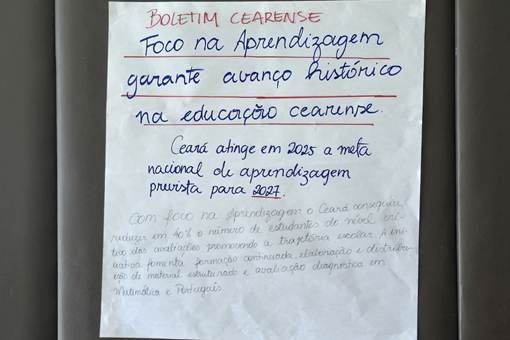 BOLETIM CEARENSE
Foco na Aprendizagem
garante avanço histórico
na educação cearense.
Ceará atinge em 2025 a meta
nacional de aprendizagem
prevista para 2027.
Com foco na Aprendizagem o Ceará conseguiu
reduzir em 40% o número de estudantes de nível crí-
tico das avaliações promovendo a trajetória escolar. A ini-
ciativa fomenta formação continuada, elaboração e distribui-
ção de material estruturado e avaliação diagnóstica em
Matemática e Português.